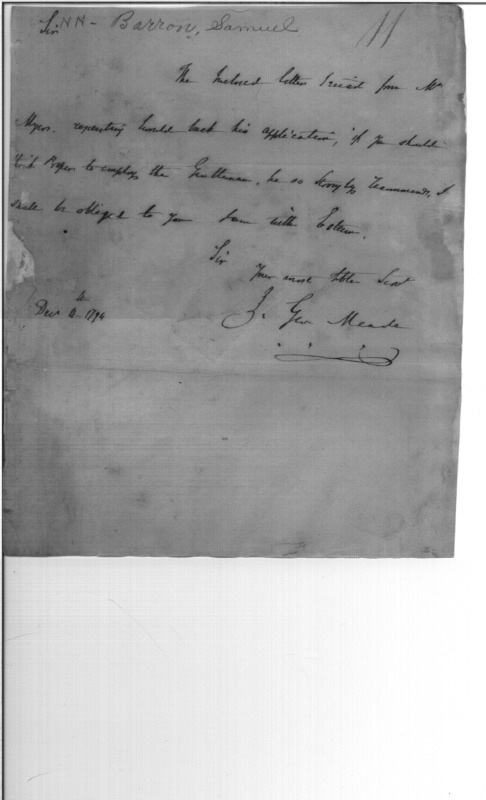 Sir NN - Barron, Samuel
The Inclosed letter I rec'd from Mr
Myers. requesting I would back his application, if you should
think Proper to employ the Gentleman, he so strongly recommends, I
shall be obliged to you I am with Esteem.
Sir
Your most Hble Servt
Geo Meade
Decr 4th 1794